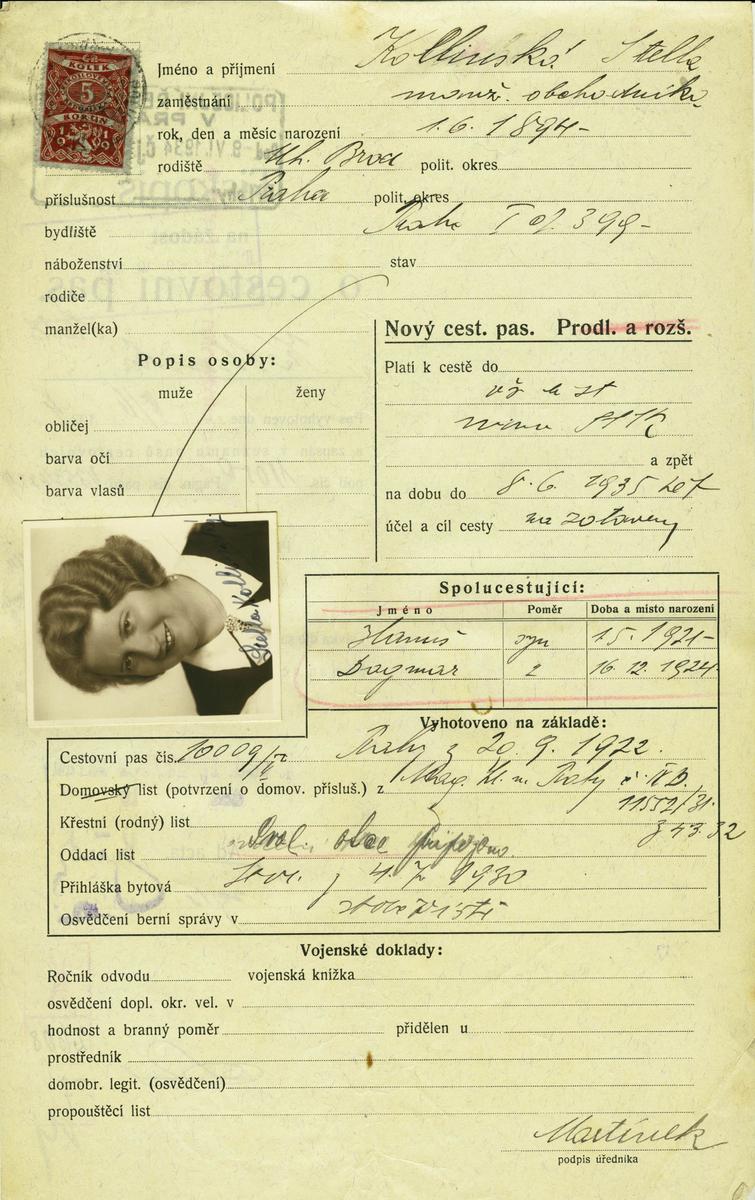 KOLEK
5
KORUN
1919
Jméno a příjmení Kollinská Stella
zaměstnání manž. obchodníka
rok, den a měsíc narození 1. 6. 1894-
rodiště Uh. Brod polit. okres
příslušnost Praha polit. okres
bydliště Praha I čj. 399-
náboženství stav
rodiče
manžel(ka)
Nový cest. pas. Prodl. a rozš.
Popis osoby:
muže ženy
obličej
barva očí
barva vlasů
Platí k cestě do
mimo
a zpět
na dobu do 8. 6. 1935
účel a cíl cesty na zotavenou
Stella Kolli
Spolucestující:
Jméno Poměr Doba a místo narození
Hanuš syn 1. 5. 1921-
Dagmar 16. 12. 1924.
Vyhotoveno na základě:
Cestovní pas čís. 10009/ Prahy z 20. 9. 1922.
Domovský list (potvrzení o domov. přísluš.) z Mag. hl. m. Prahy č. IV B.
11552/31.
Křestní (rodný) list z 4 3. 32
Oddací list
Přihláška bytová z 4. 1930
Osvědčení berní správy v
Vojenské doklady:
Ročník odvodu vojenská knížka
osvědčení dopl. okr. vel. v
hodnost a branný poměr přidělen u
prostředník
domobr. legit. (osvědčení)
propouštěcí list
Martínek
podpis úředníka